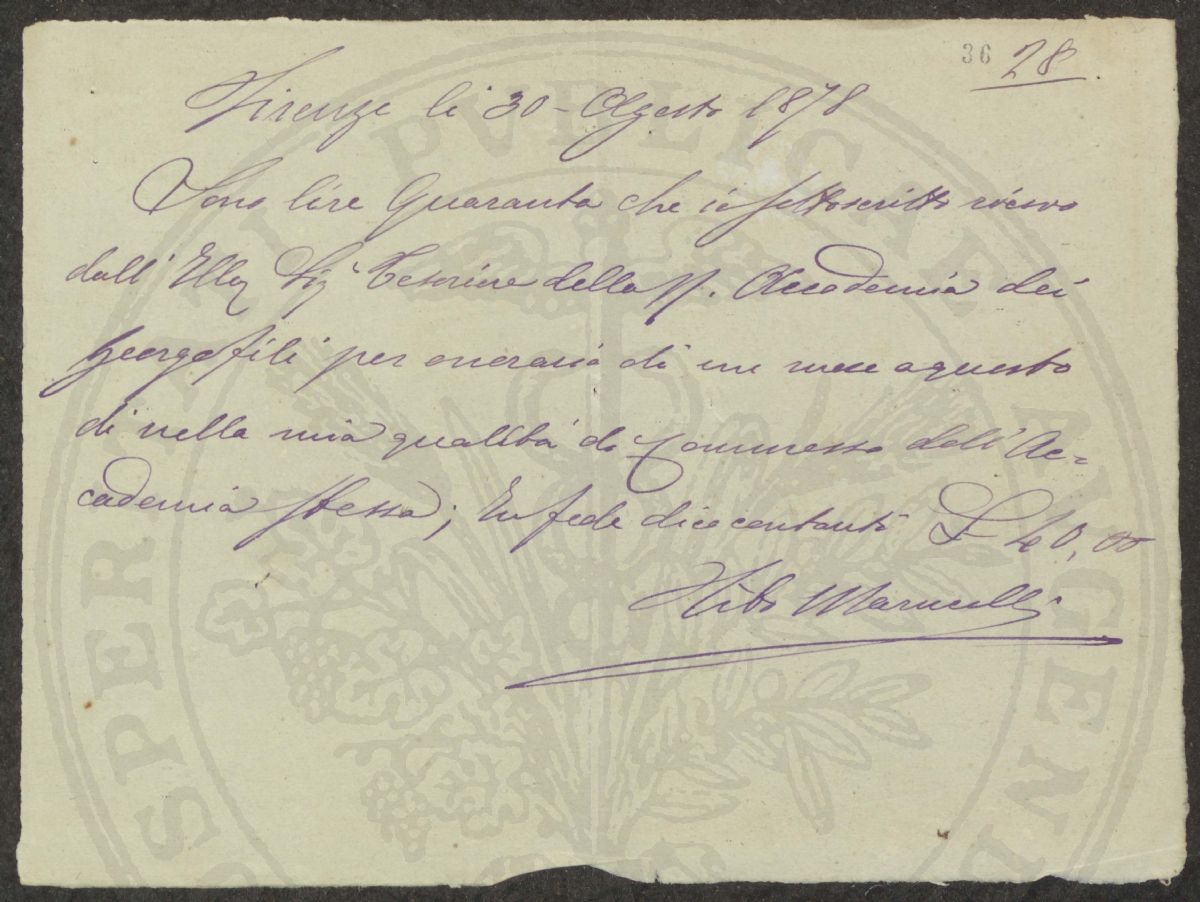 36 28
Firenze li 30 - Agosto 1878
Sono lire Quaranta che io sottoscritto ricevo
dall' Ill. Sig. Tesoriere della R. Accademia dei
Georgofili per onorario di un mese a questo
di nella mia qualità di Commesso dell' Ac=
cademia stessa; In fede dico contanti £ 40,00
Marucelli
PROSPERITATI PVBLICAE AVGENDAE